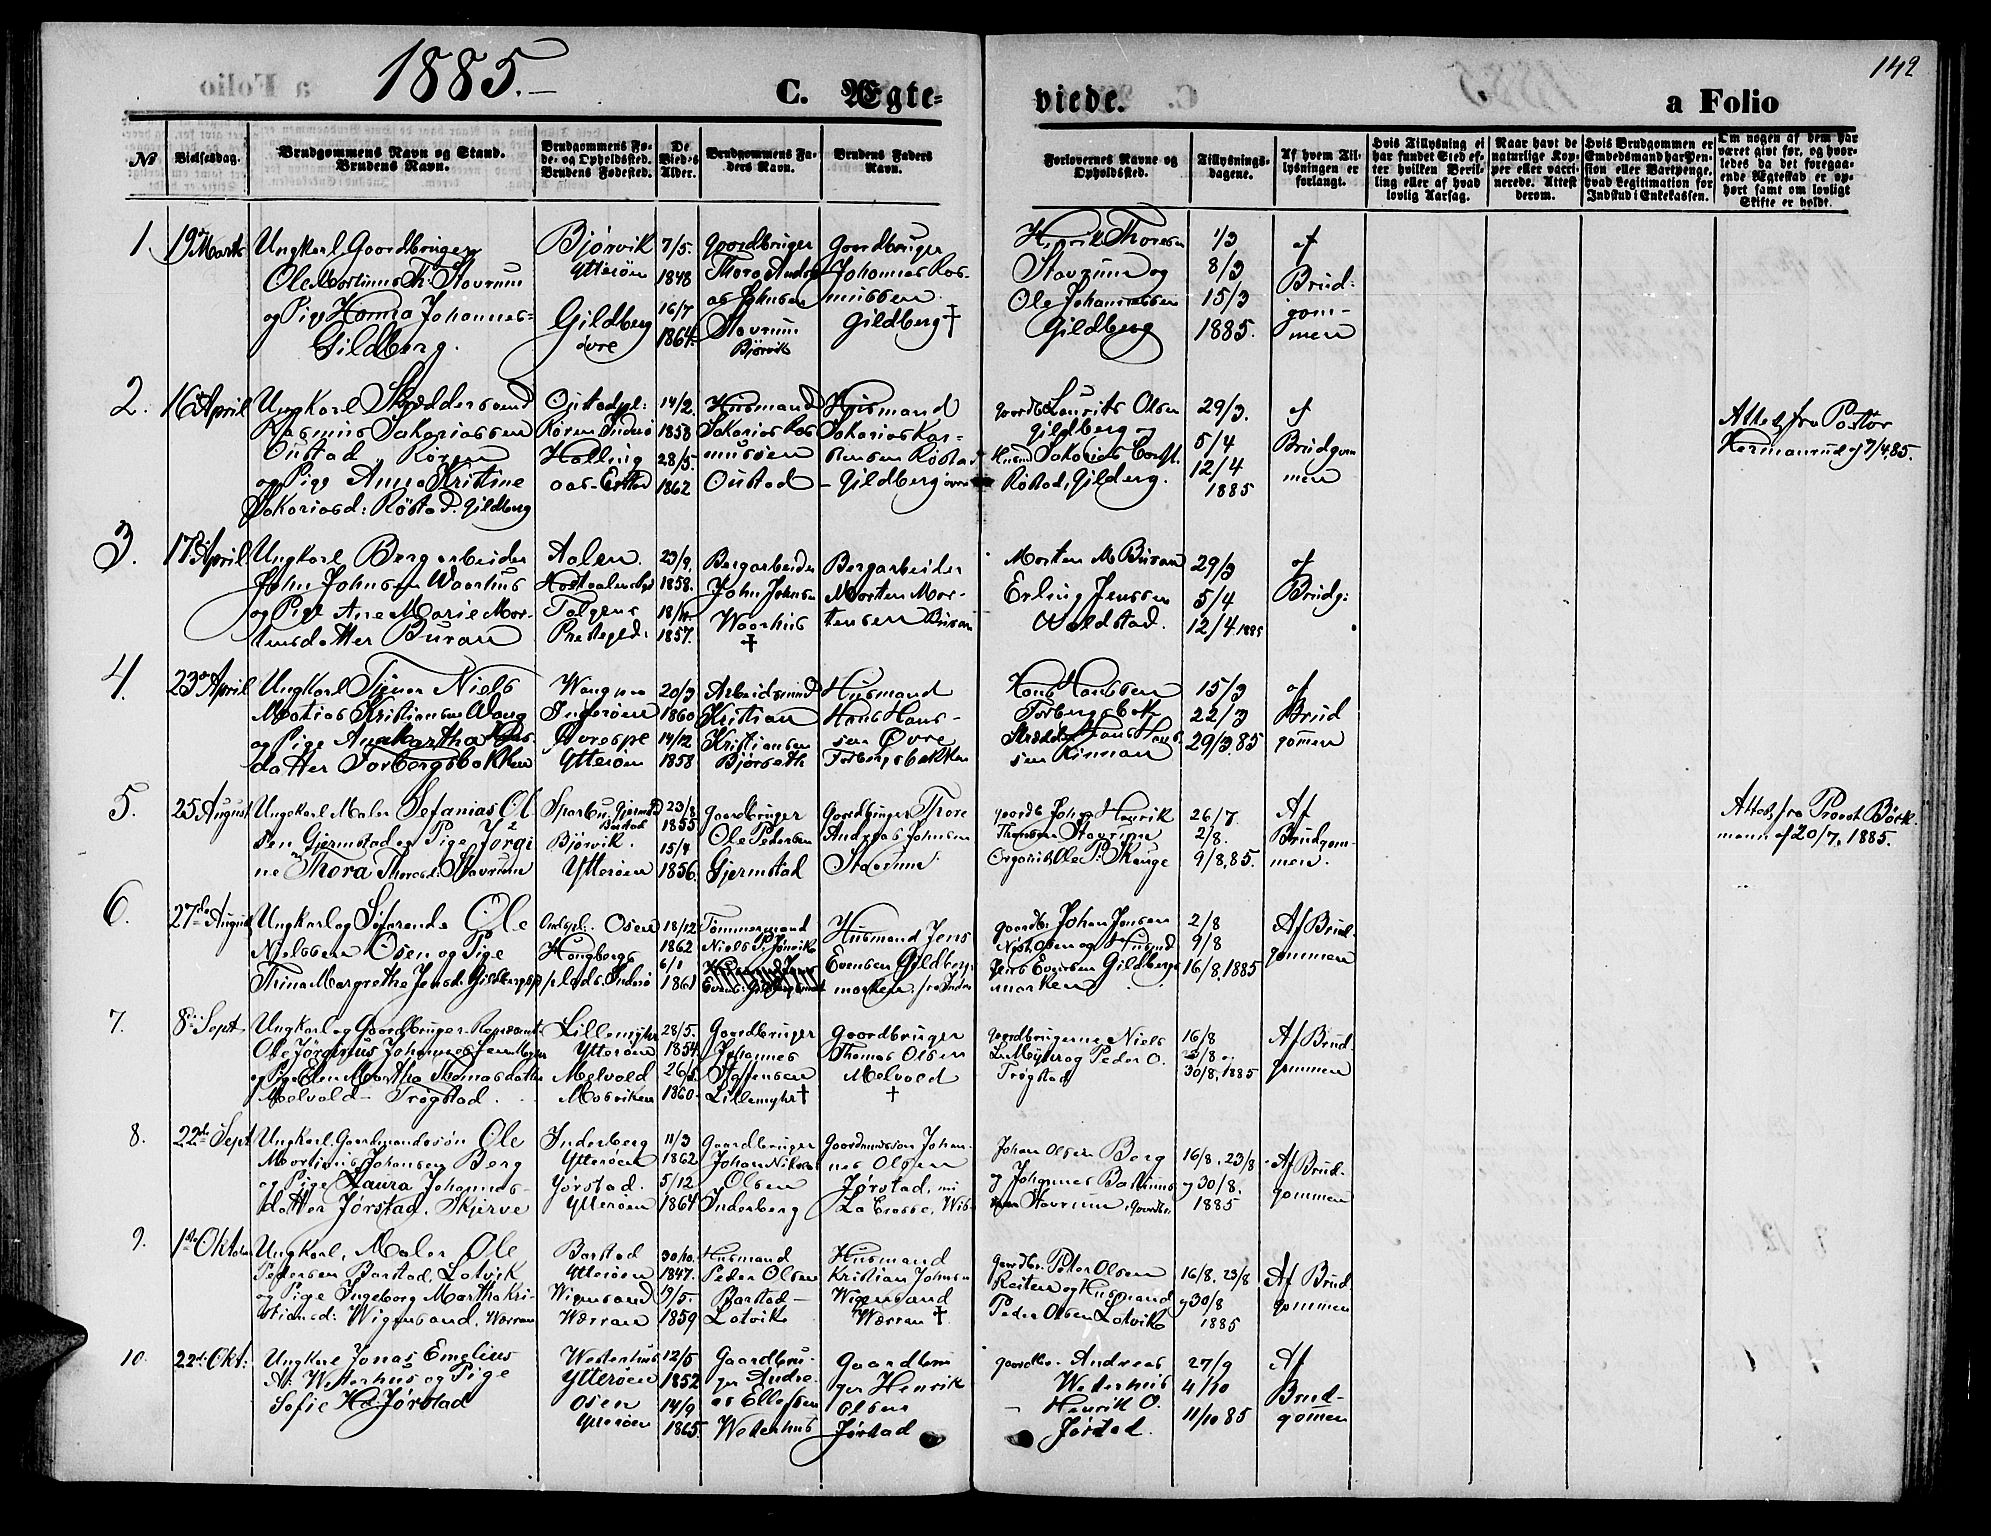 1885.
C. Ægte-
viede.
a Folio
142
No
Vielsesdag.
Brudgommens Navn og Stand.
Brudens Navn.
Brudgommens Fø-
de- og Opholdsted.
Brudens Fødested.
De
Vied-
Alder.
Brudgommens Fa-
ders Navn.
Brudens Faders
Navn.
Forlovernes Navne og
Opholdsted.
Tillysnings-
dagene.
Af hvem Til-
lysningen er
forlangt.
Hvis Tillysning ei
har fundet Sted ef-
ter hvilken Beril-
ling eller af hvad
lovlig Aarsag.
Naar havt de
naturlige Kop-
per eller vacci-
nerede. Attest
derom.
Hvis Brudgommen er
Embedsmand har Pen-
sion eller Vartpenge,
hvad Legitimation for
Indskud i Enkekassen.
Om nogen af dem har
været givt før, og hvor-
ledes da det foregaa-
ende Ægteskab er op-
hørt samt om lovligt
Skifte er holdt.
1
19 Marts
Ungkarl Gaardbruger
Ole Martinus Th. Stavrum
og Pige Hanna Johannes-
Gildberg.
Bjørvik
Ytterøen
Gildberg
øvre
7/5.
1848
16/7
1864
Gaardbruger
Thore Andre
as Johnsen
Stavrum
Bjørvik
Gaardbruger
Johannes Ras-
mussen
Gildberg †
Henrik Thoresen
Stavrum og
Ole Johannessen
Gildberg
1/3
8/3
15/3
1885.
af
Brud-
gom-
men
2.
16 April
Ungkarl Skræddersvend
Rasmus Sakariassen
Oustad, Kören
og Pige Anna Kristine
Sakariasd: Röstad: Gildberg
Oustadpl:
Kören Inderö
Holling
aas-
14/2.
1858
28/5.
1862
Husmand
Sakarias Ras
mussen
Oustad
Husmand
Sakarias Kar-
stensen Röstad
- Gildberg øvre
Gaardb. Laurits Olsen
Gildberg og
Husmd Sakarias
Röstad, Gilderg.
29/3.
5/4
12/4
1885
af
Brudgom
men
Attest fra Pastor
Hermanrud af 7/4 85.
3.
17 April
Ungkarl Bergarbeider
John Johnsen Waarhus
og Pige Ane Marie Mor-
tensdatter Buran
Aalen.
Tolgens
Prestegjld:
23/9.
1858.
18/11
1857.
Bergarbeider
John Johnsen
Waarhus
†
Bergarbeider
Morten Mor-
tensen Buran
Morten M Buran
Erling Jenssen
Woldstad.
29/3
5/4
12/4 1885
af
Brudg:
4.
23 April
Ungkarl Tjener Niels
Matias Kristiansen Wang
og Pige Ana Martha Hans
datter Forbergsbakken
Inderöen
Ytterøen
20/3
1860
14/12
1858
Arbeidsmand
Kristian
Kristiansen
Bjørseth
Husmand
Hans Hans-
sen Øvre
Forbergsbakken
Hans Hanssen
Forbergsbak
Skrædder Hans Hans
sen Rinnan
15/3
22/3
29/3.85
af
Brud
gomen
5.
25 August
Ungekarl Maler Sefanias Ol
sen Gjermstad og Pige Jörgi
ne Thora Thoresd: Stavrum
Sparbu, Gjermstad
Bjørvik.
Ytterøen
23/8
1855
15/4
1856.
Gaardbruger
Ole Pedersen
Gjermstad
Gaardbruger Thore
Andreas Johnsen
Stavrum
Gaardb. Johan Henrik
Thoresen Stavrum
Organist Ole P: Skauge
26/7.
2/8.
9/8.85.
Af
Brudgom-
men.
Attest fra Provst Böck-
mann af 20/7. 1885.
6.
27de August
Ungkarl og Søfarende Ole
Nielssen Osen og Pige
Trina Margrethe Jensd: Gildbergspl
Osen
Haugbergs
plads. Inderö
18/12
1862
6/1
1861
Tömmermand
Niels P. Jönvik
Husmand Jens
Evensen Gildberg-
marken, fra Inderö
Gaardbr. Johan Jensen
Osen og Husmd
Jens Evensen Gildbergs
marken
2/8
9/8
16/8.1885
Af Brud-
gommen
7.
8 Sept
Ungkarl og Gaardbruger
Ole Jörginus Johannessen
og Pige Elen Martha Thomasdatter
Melvold - Trøgstad.
Lillemyhr
Ytterøen
Melvold
Mosviken
28/5.
1854
26/5
1860
Gaardbruger
Johannes
Steffensen
Lillemyhr †
Gaardbruger
Thomas Olsen
Melvold
†
Gaardbrugerne Niels
L. Myhr og Peder O.
Trøgstad
16/8
23/8 og
30/8, 1885
Af Brud-
gommen
8.
22de Sept
Ungkarl, Gaardmandssøn Ole
Martinus Johansen Berg
og Pige Laura Johannes-
datter Jørstad. Skjerve
Inderberg
Ytterøen
Jørstad.
Ytterøen
11/3
1862
5/12
1864
Gaardbruger
Johan Nikolai
Olsen
Inderberg
Johan-
nes Olsen
Jørstad, nu
La Crosse, Wis
Johan Olsen Berg
og Johannes
Stavrum, Gaardbr.
16/8, 23/8
og 30/8.
1885
Af Brud-
gommen
9.
1ste Oktober
Ungkarl, Maler Ole
Pedersen Barstad, Lotvik
og Pige Ingeborg Martha Kri-
stiansd: Wigensand, Værran
Barstad
Ytterøen
Wigensand
Værran
30/10.
1847.
19/5.
1859
Husmand
Peder Olsen
Barstad -
Lotvik
Husmand
Kristian Johnsen
Wigensand
Værran †
Gaardbr. Peter Olsen
Reiten og Husmand
Peder Olsen Lotvik
16/8, 23/8
og 30/8
1885
Af Brud
gommen
10.
22de Okt:
Ungkarl Jonas Emelius
A: Westerhus og Pige
Sofie Hd. Jørstad
Westerhus
Ytterøen
Osen
Ytterøen
12/5
1852
14/9
1865.
Gaardbru-
ger Andre-
as Ellefsen
Westerhus
Gaardbru
ger Henrik
Olsen
Jørstad
Gaardbr. Andreas
Westerhus
- Henrik O.
Jørstad.
27/9
4/10
11/10 85
Af
Brud-
gomen